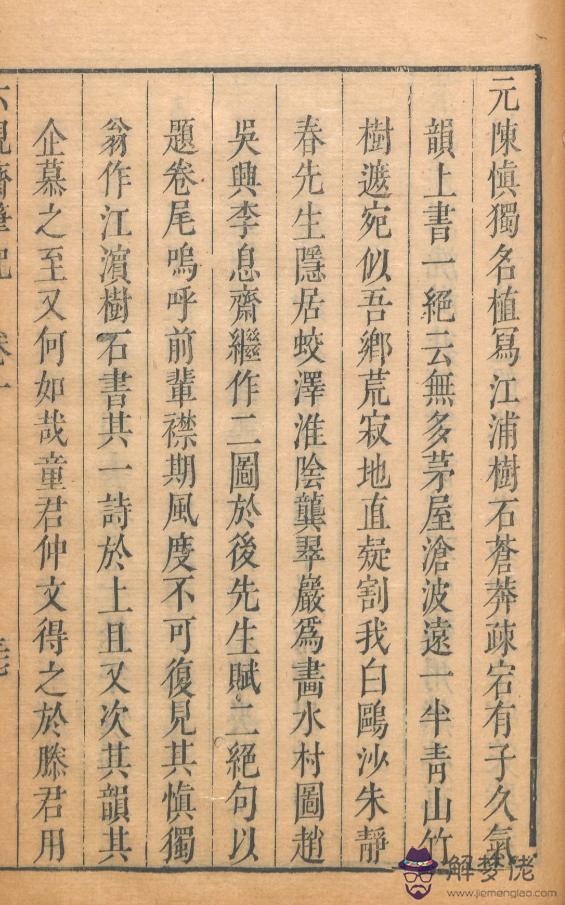 元陳慎獨名植冩江浦樹石蒼莽疎宕有子久氣
韻上書一絕云無多茅屋滄波遠一半青山竹
樹遮宛似吾鄉荒寂地直疑割我白鷗沙朱靜
春先生隱居蛟澤淮陰龔翠巖為畵水村圖趙
吳興李息齋繼作二圖於後先生賦二絕句以
題卷尾嗚呼前輩襟期風度不可復見其慎獨
翁作江濵樹石書其一詩於上且又次其韻其
企慕之至又何如哉童君仲文得之於滕君用
六硯齋筆記 卷一
解梦佬
www.jiemenglao.com